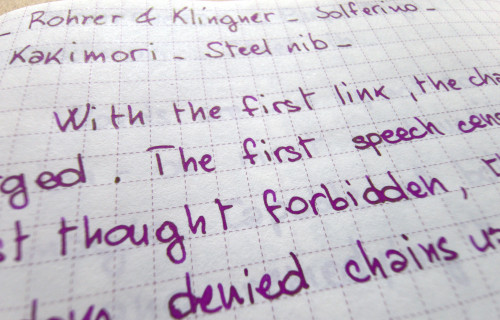 - Rohrer & Klingner - Solferino -
Kakimori - Steel nib -
With the first link, the cha
ged. The first speech cens
st thought forbidden, t
denied chains u